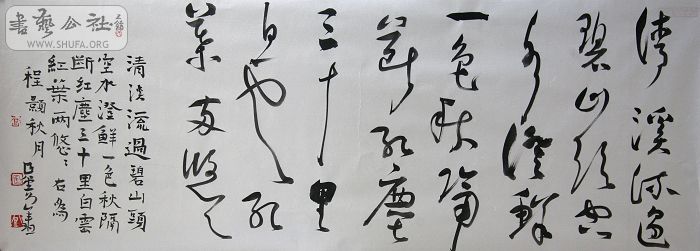 清溪流過
碧山頭空
水澄鮮
一色秋隔
斷紅塵
三十里
白雲紅
葉兩悠々
清溪流過碧山頭
空水澄鮮一色秋隔
斷紅塵三十里白雲
紅葉兩悠々右為
程顥秋月
書藝公社
WWW.SHUFA.ORG